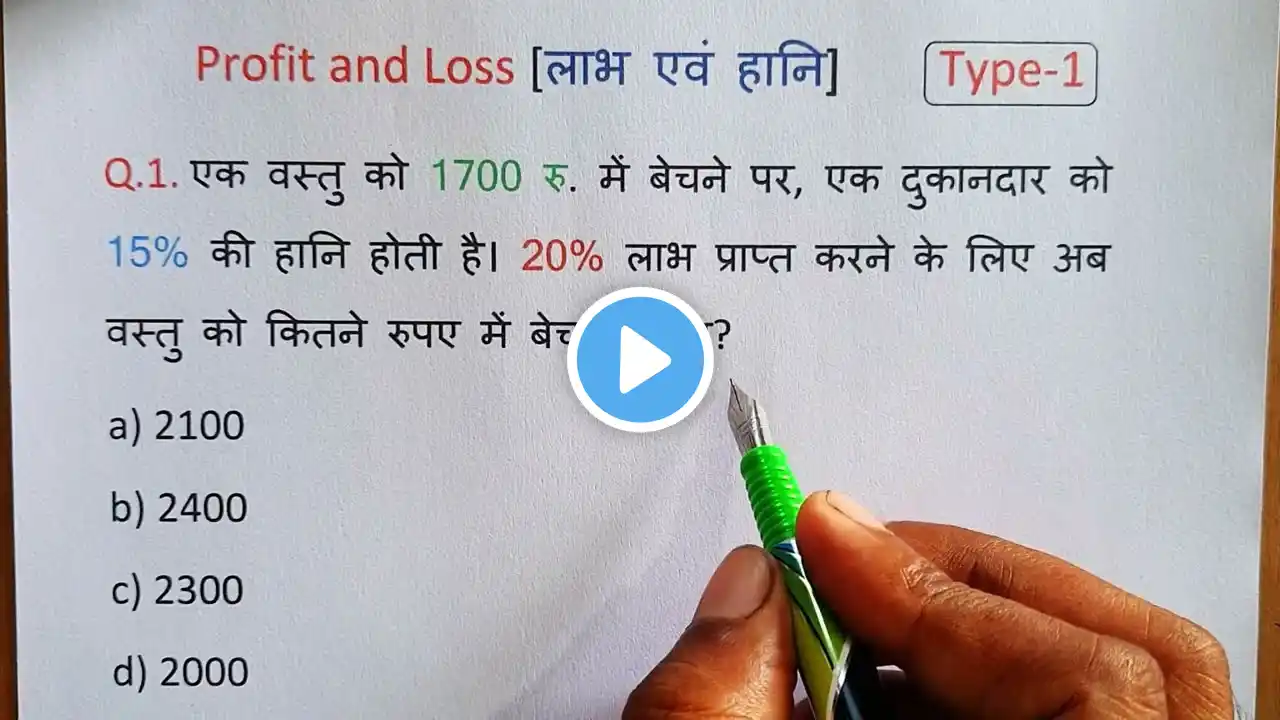 Profit and Loss [लाभ एवं हानि] Type-1
Q.1. एक वस्तु को 1700 रु. में बेचने पर, एक दुकानदार को
15% की हानि होती है। 20% लाभ प्राप्त करने के लिए अब
वस्तु को कितने रुपए में ?
a) 2100
b) 2400
c) 2300
d) 2000